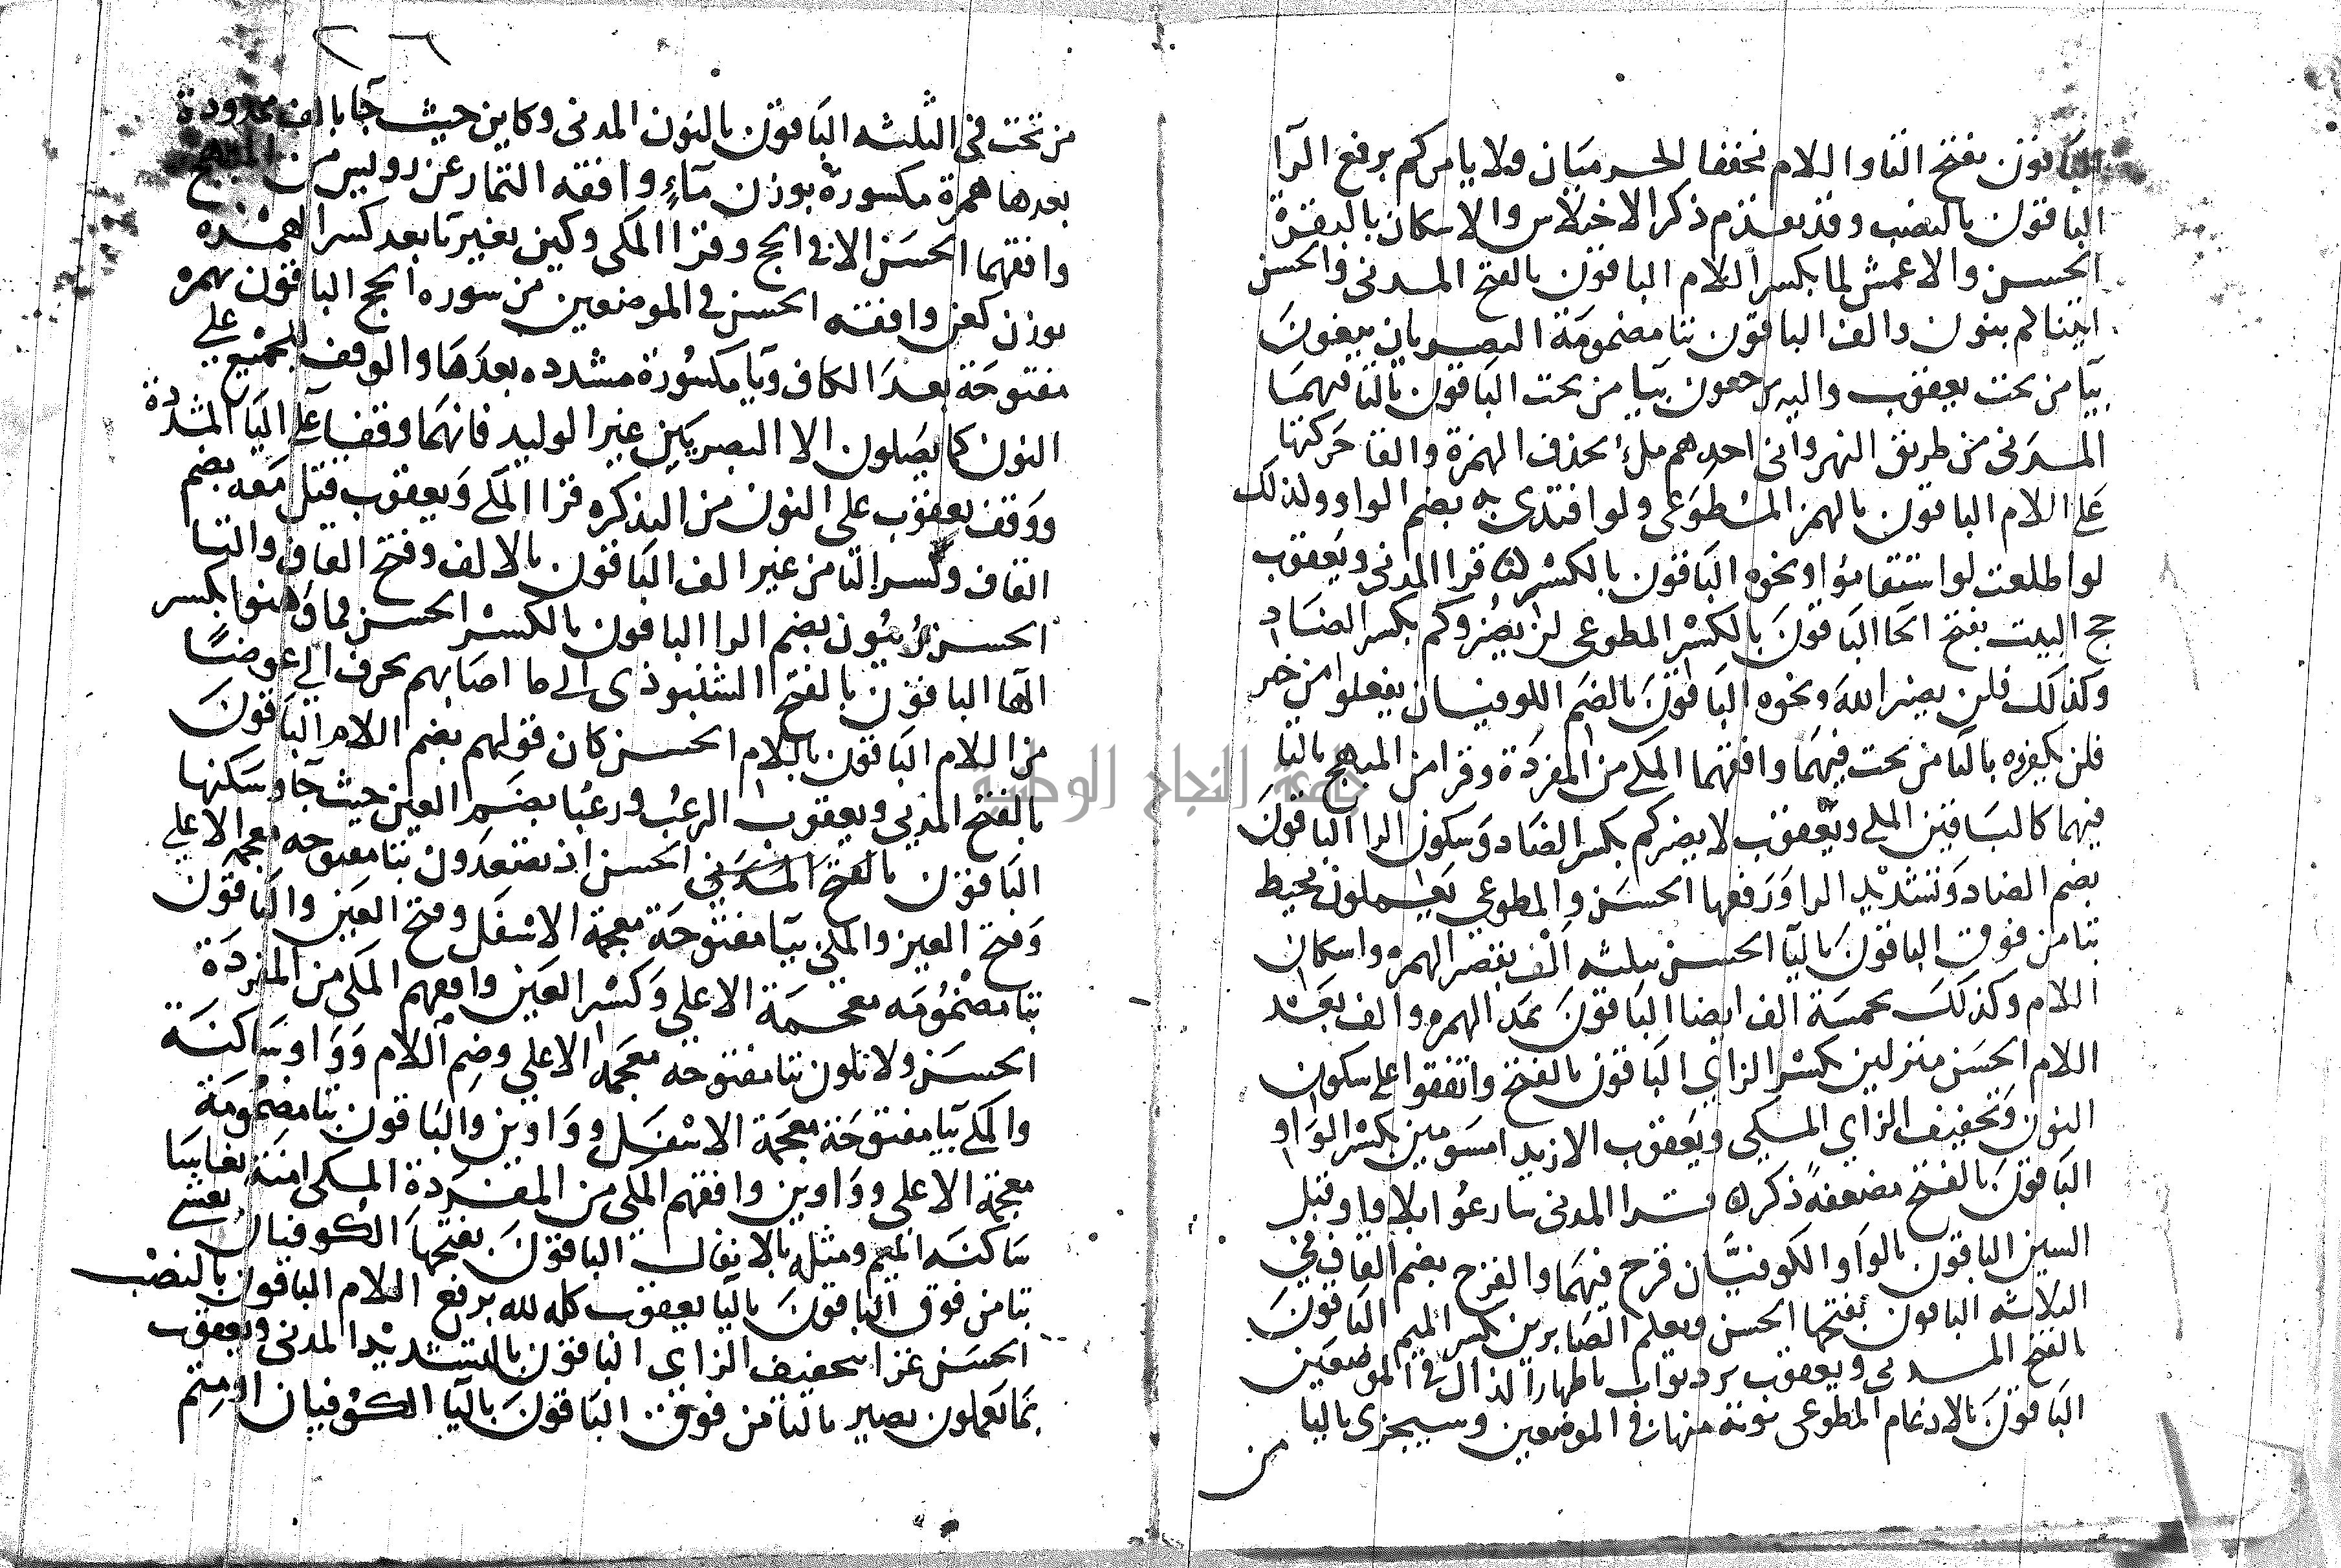 الباقون بفتح التا واللام مخففا الحرميان ولا يامركم برفع الرا
الباقون بالنصب وقد تقدم ذكر الاختلاس والاسكان بالبقرة
الحسن والاعمش لما بكسر اللام الباقون بالفتح المدنى والحسن
اتينا لم بنون والف الباقون بتا مضمومة البصريان يبغون
بيا من تحت يعقوب واليه يرجعون بيا من تحت الباقون بالتا فيهما
المدنى من طريق النهروانى احدهم مل بحذف الهمزة والقا حركتها
على اللام الباقون بالهمز المطوعى ولو افتدى به بضم الواو ولذلك
لو اطلعت لو استقاموا ونحوه الباقون بالكسر قرا المدنى ويعقوب
حج البيت بفتح الحا الباقون بالكسر المطوعى لن يضروكم بكسر الضاد
وكذلك فلن يضر الله ونحوه الباقون بالضم الكوفيان يفعلوا من خير
فلن يكفروه باليا من تحت فيهما وافقهما المكى من المفردة وقرا من المبهج باليا
فيهما كالباقين المكى ويعقوب لا يضركم بكسر الضاد وسكون الرا الباقون
بضم الضاد وتشديد الرا ورفعها الحسن والمطوعي يعملون محيط
بتا من فوق الباقون باليا الحسن بثلثه الف بقصر الهمزه واسكان
اللام وكذلك بخمسة الف ايضا الباقون بمد الهمزه والف بعد
اللام الحسن منزلين بكسر الزاى الباقون بالفتح واتفقوا على سكون
النون وتخفيف الزاى المكي ويعقوب الا زيد امسومين بكسر الواو
الباقون بالفتح مضعفة ذكر قرا المدنى سارعوا بلا واو قبل
السين الباقون بالواو الكوفيان قرح فيهما والقرح بضم القاف في
الثلاثه الباقون بفتحها الحسن ويعلم الصابرين بكسر الميم الباقون
بالفتح المدنى ويعقوب يرد ثواب باظهار الذال فى الموضعين
الباقون بالادغام المطوعى نوته منها فى الموضعين وسيجزى باليا
من
٢٦
من تحت في الثلثه الباقون بالنون المدنى وكاين حيث جا بالف ممدودة
بعدها همزة مكسورة بوزن مآء وافقه التمار عن رويس من المبهج
وافقهما الحسن الا في الحج وقرا المكى وكين بغير يا بعد كسر الهمزه
بوزن كعن وافقه الحسن في الموضعين من سوره الحج الباقون بهمزه
مفتوحة بعد الكاف ويا مكسورة مشدده بعدها والوقف للجميع على
النون كما يصلون الا البصريين غير الوليد فانهما وقفا على اليا المشددة
ووقف يعقوب على النون من التذكره قرا المكى ويعقوب قتل معه بضم
القاف وكسر التا من غير الف الباقون بالالف وفتح القاف والتا
الحسن ربيون بضم الرا الباقون بالكسر الحسن فما وهنوا بكسر
الها الباقون بالفتح الشنبوذى الى ما اصابهم بحرف الي عوضا
من اللام الباقون باللام الحسن كان قولهم بضم اللام الباقون
بالفتح المدنى ويعقوب الرعب ورعبا بضم العين حيث جا وسكنها
الباقون بالفتح المدني الحسن اذ تصعدون بتا مفتوحه معجمه الاعلي
وفتح العين والمكى بيا مفتوحة معجمة الاسفل وفتح العين والباقون
بتا مضمومه معجمة الاعلي وكسر العين وافقهم المكى من المفردة
الحسن ولا تلون بتا مفتوحه معجمه الاعلي وضم اللام وواو ساكنة
والمكى بيا مفتوحة معجمة الاسفل وواوين والباقون بتا مضمومة
معجمة الاعلى وواوين وافقهم المكى من المفردة المكى امنة نعاسا
ساكنه الميم ومثله بالانفال الباقون بفتحها الكوفيان تغشى
بتا من فوق الباقون باليا يعقوب كله لله برفع اللام الباقون بالنصب
الحسن غزا بتخفيف الزاى الباقون بالتشديد المدنى ويعقوب
بما تعملون بصير بالتا من فوق الباقون باليا الكوفيان او متم
جامعة النجاح الوطنية